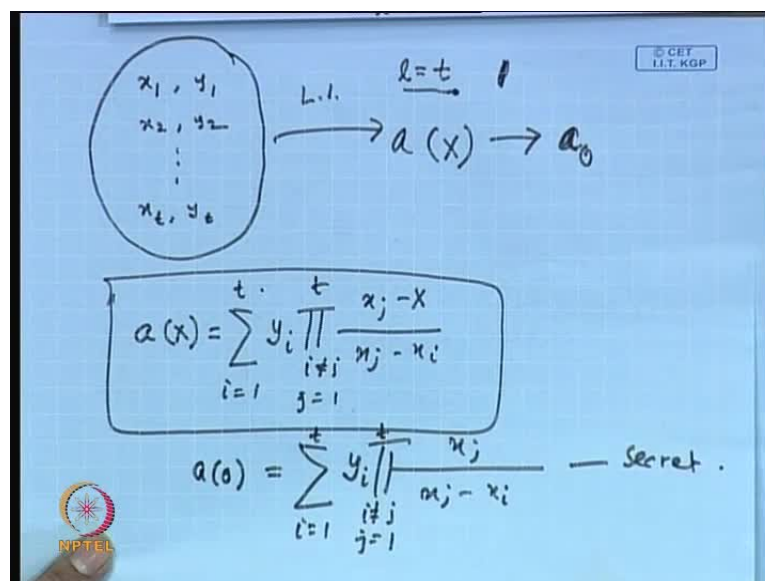 © CET
I.I.T. KGP
l = t
x₁ , y₁
x₂ , y₂
⋮
x_t , y_t
L.I.
a (X) → a₀
a (x) = ∑_{i=1}^{t} y_i ∏_{i≠j, j=1}^{t} (x_j - X) / (x_j - x_i)
a(0) = ∑_{i=1}^{t} y_i ∏_{i≠j, j=1}^{t} x_j / (x_j - x_i) — Secret .
NPTEL